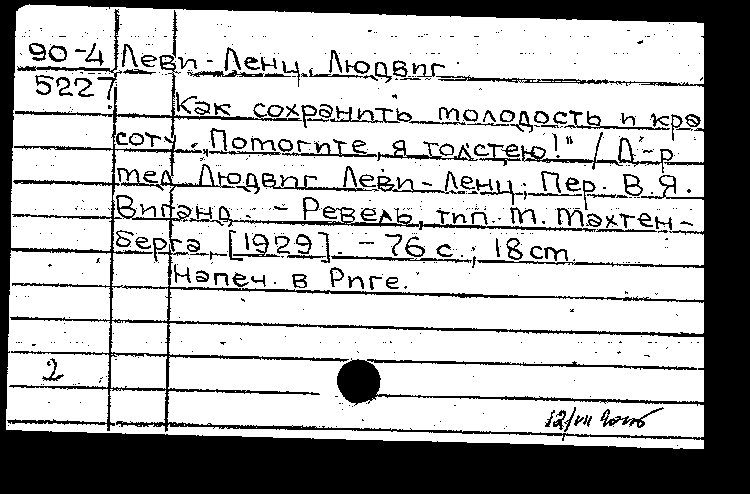 90-4 Леви-Ленц, Людвиг
5227
Как сохранить молодость и кра
соту. „Помогите, я толстею!" / Д-р
мед. Людвиг Леви-Ленц; Пер. В.Я.
Виганд. - Ревель, тип. М. Махтен-
берга, [1929]. - 76 с.; 18 cm
Напеч. в Риге.
2
12/VII